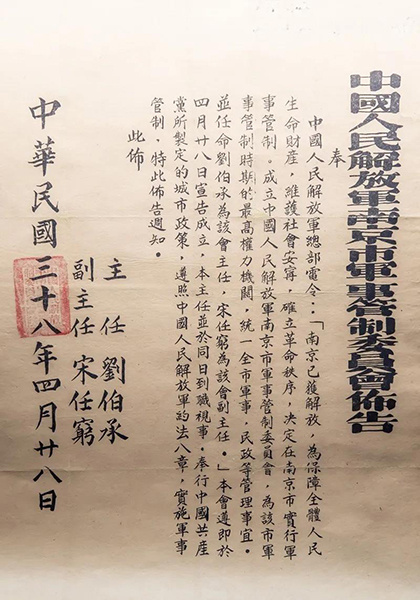 中國人民解放軍南京市軍事管制委員會佈告
奉
中國人民解放軍總部電令：「南京已獲解放，為保障全體人民
生命財產，維護社會安寧，確立革命秩序，決定在南京市實行軍
事管制。成立中國人民解放軍南京市軍事管制委員會，為該市軍
事管制時期的最高權力機關，統一全市軍事，民政等管理事宜。
並任命劉伯承為該會主任，宋任窮為該會副主任。」本會遵即於
四月廿八日宣告成立，本主任並於同日到職視事。奉行中國共產
黨所製定的城市政策，遵照中國人民解放軍約法八章，實施軍事
管制，特此佈告週知。
此佈
主任 劉伯承
副主任 宋任窮
中華民國三十八年四月廿八日